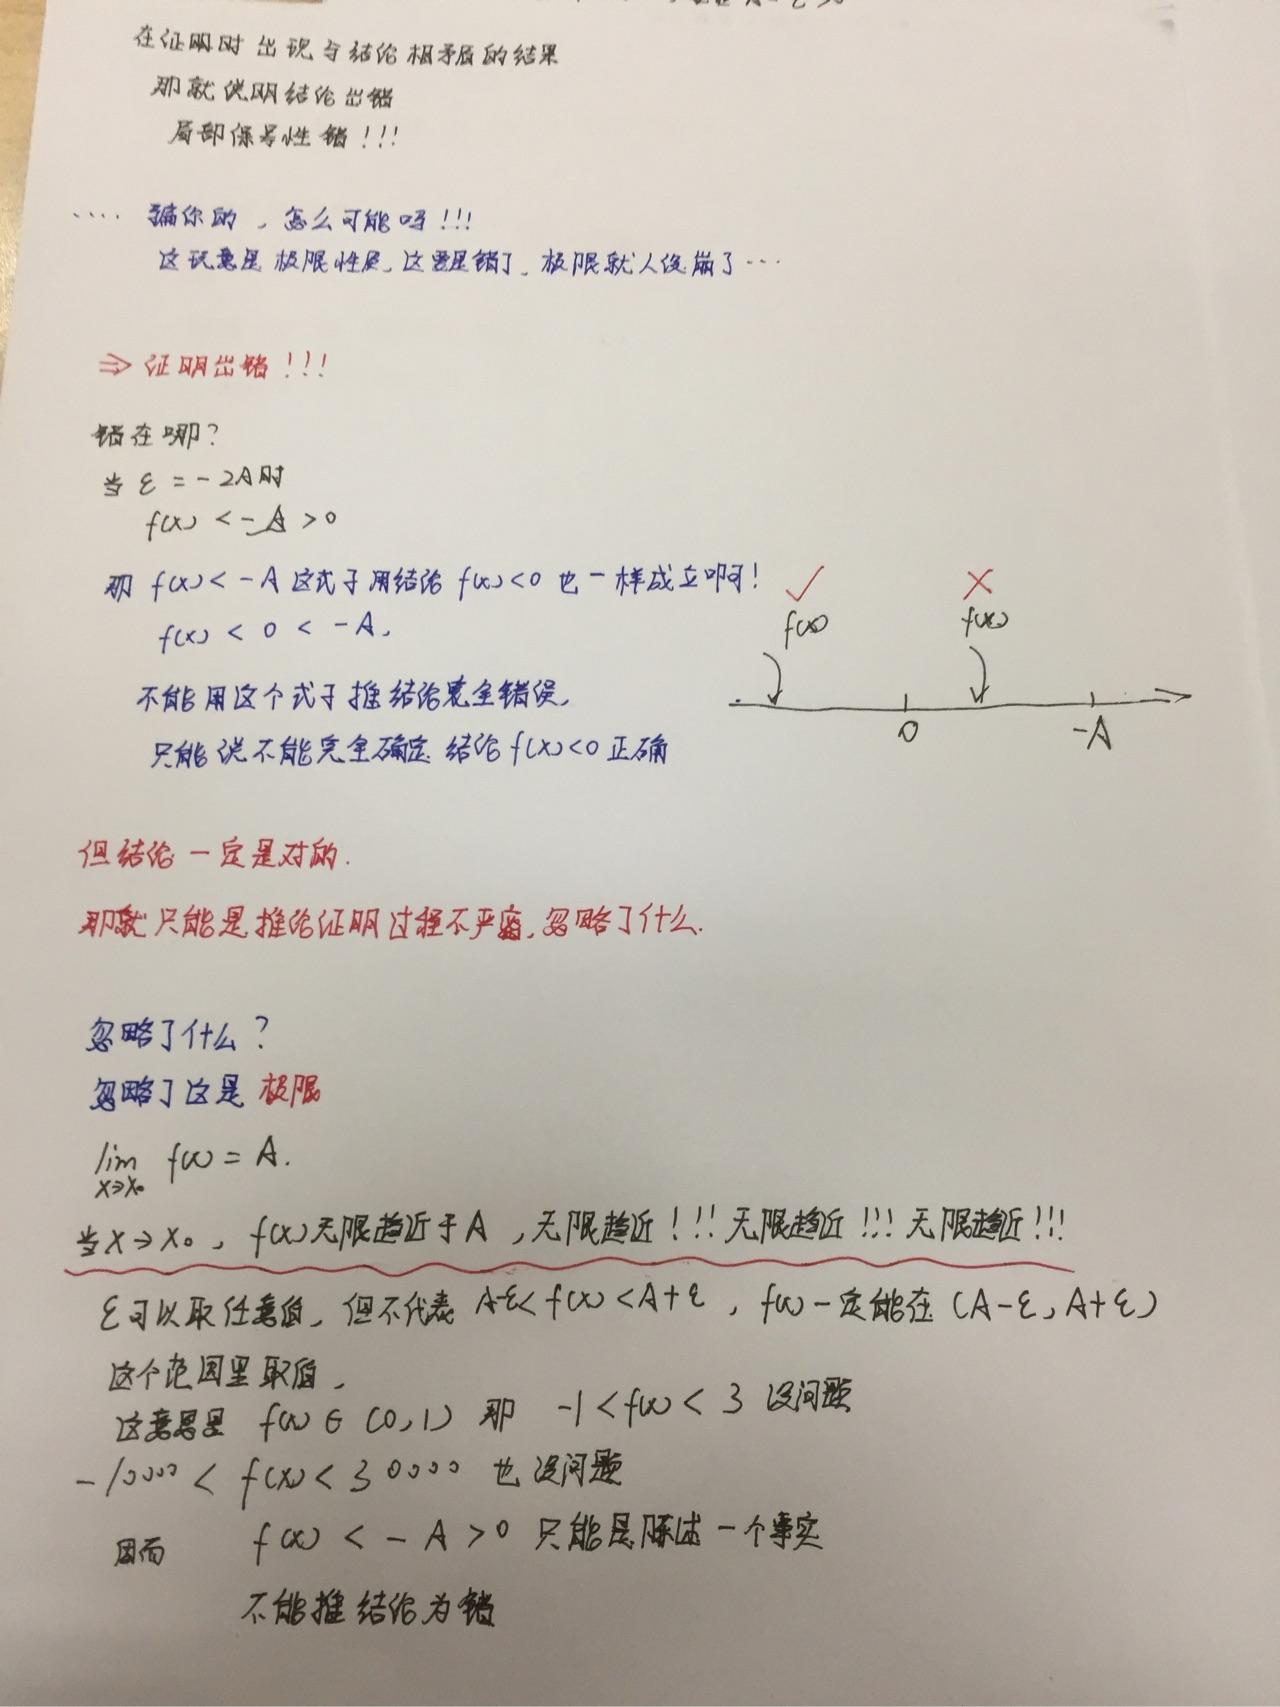 在证明时出现与结论相矛盾的结果
那就说明结论出错
局部保号性错!!!
.... 骗你的，怎么可能吗!!!
这玩意是极限性质，这要是错了，极限就人设崩了...
⇒ 证明出错!!!
错在哪?
当 ε = -2A时
f(x) < -A > 0
那 f(x) < -A 这式子用结论 f(x)<0 也一样成立啊!
✓ ×
f(x) < 0 < -A,
f(x) f(x)
不能用这个式子推结论完全错误,
0 -A
只能说不能完全确定 结论 f(x)<0 正确
但结论一定是对的.
那就只能是推论证明过程不严密,忽略了什么.
忽略了什么?
忽略了这是 极限
lim f(x) = A.
x→x₀
当x→x₀, f(x)无限趋近于A ,无限趋近!!!无限趋近!!!无限趋近!!!
ε可以取任意值, 但不代表 A-ε< f(x) <A+ε , f(x)一定能在 (A-ε, A+ε)
这个范围里取值,
这意思是 f(x) ∈ (0,1) 那 -1 < f(x) < 3 没问题
-10000 < f(x) < 30000 也没问题
因而 f(x) < -A > 0 只能是陈述一个事实
不能推结论为错